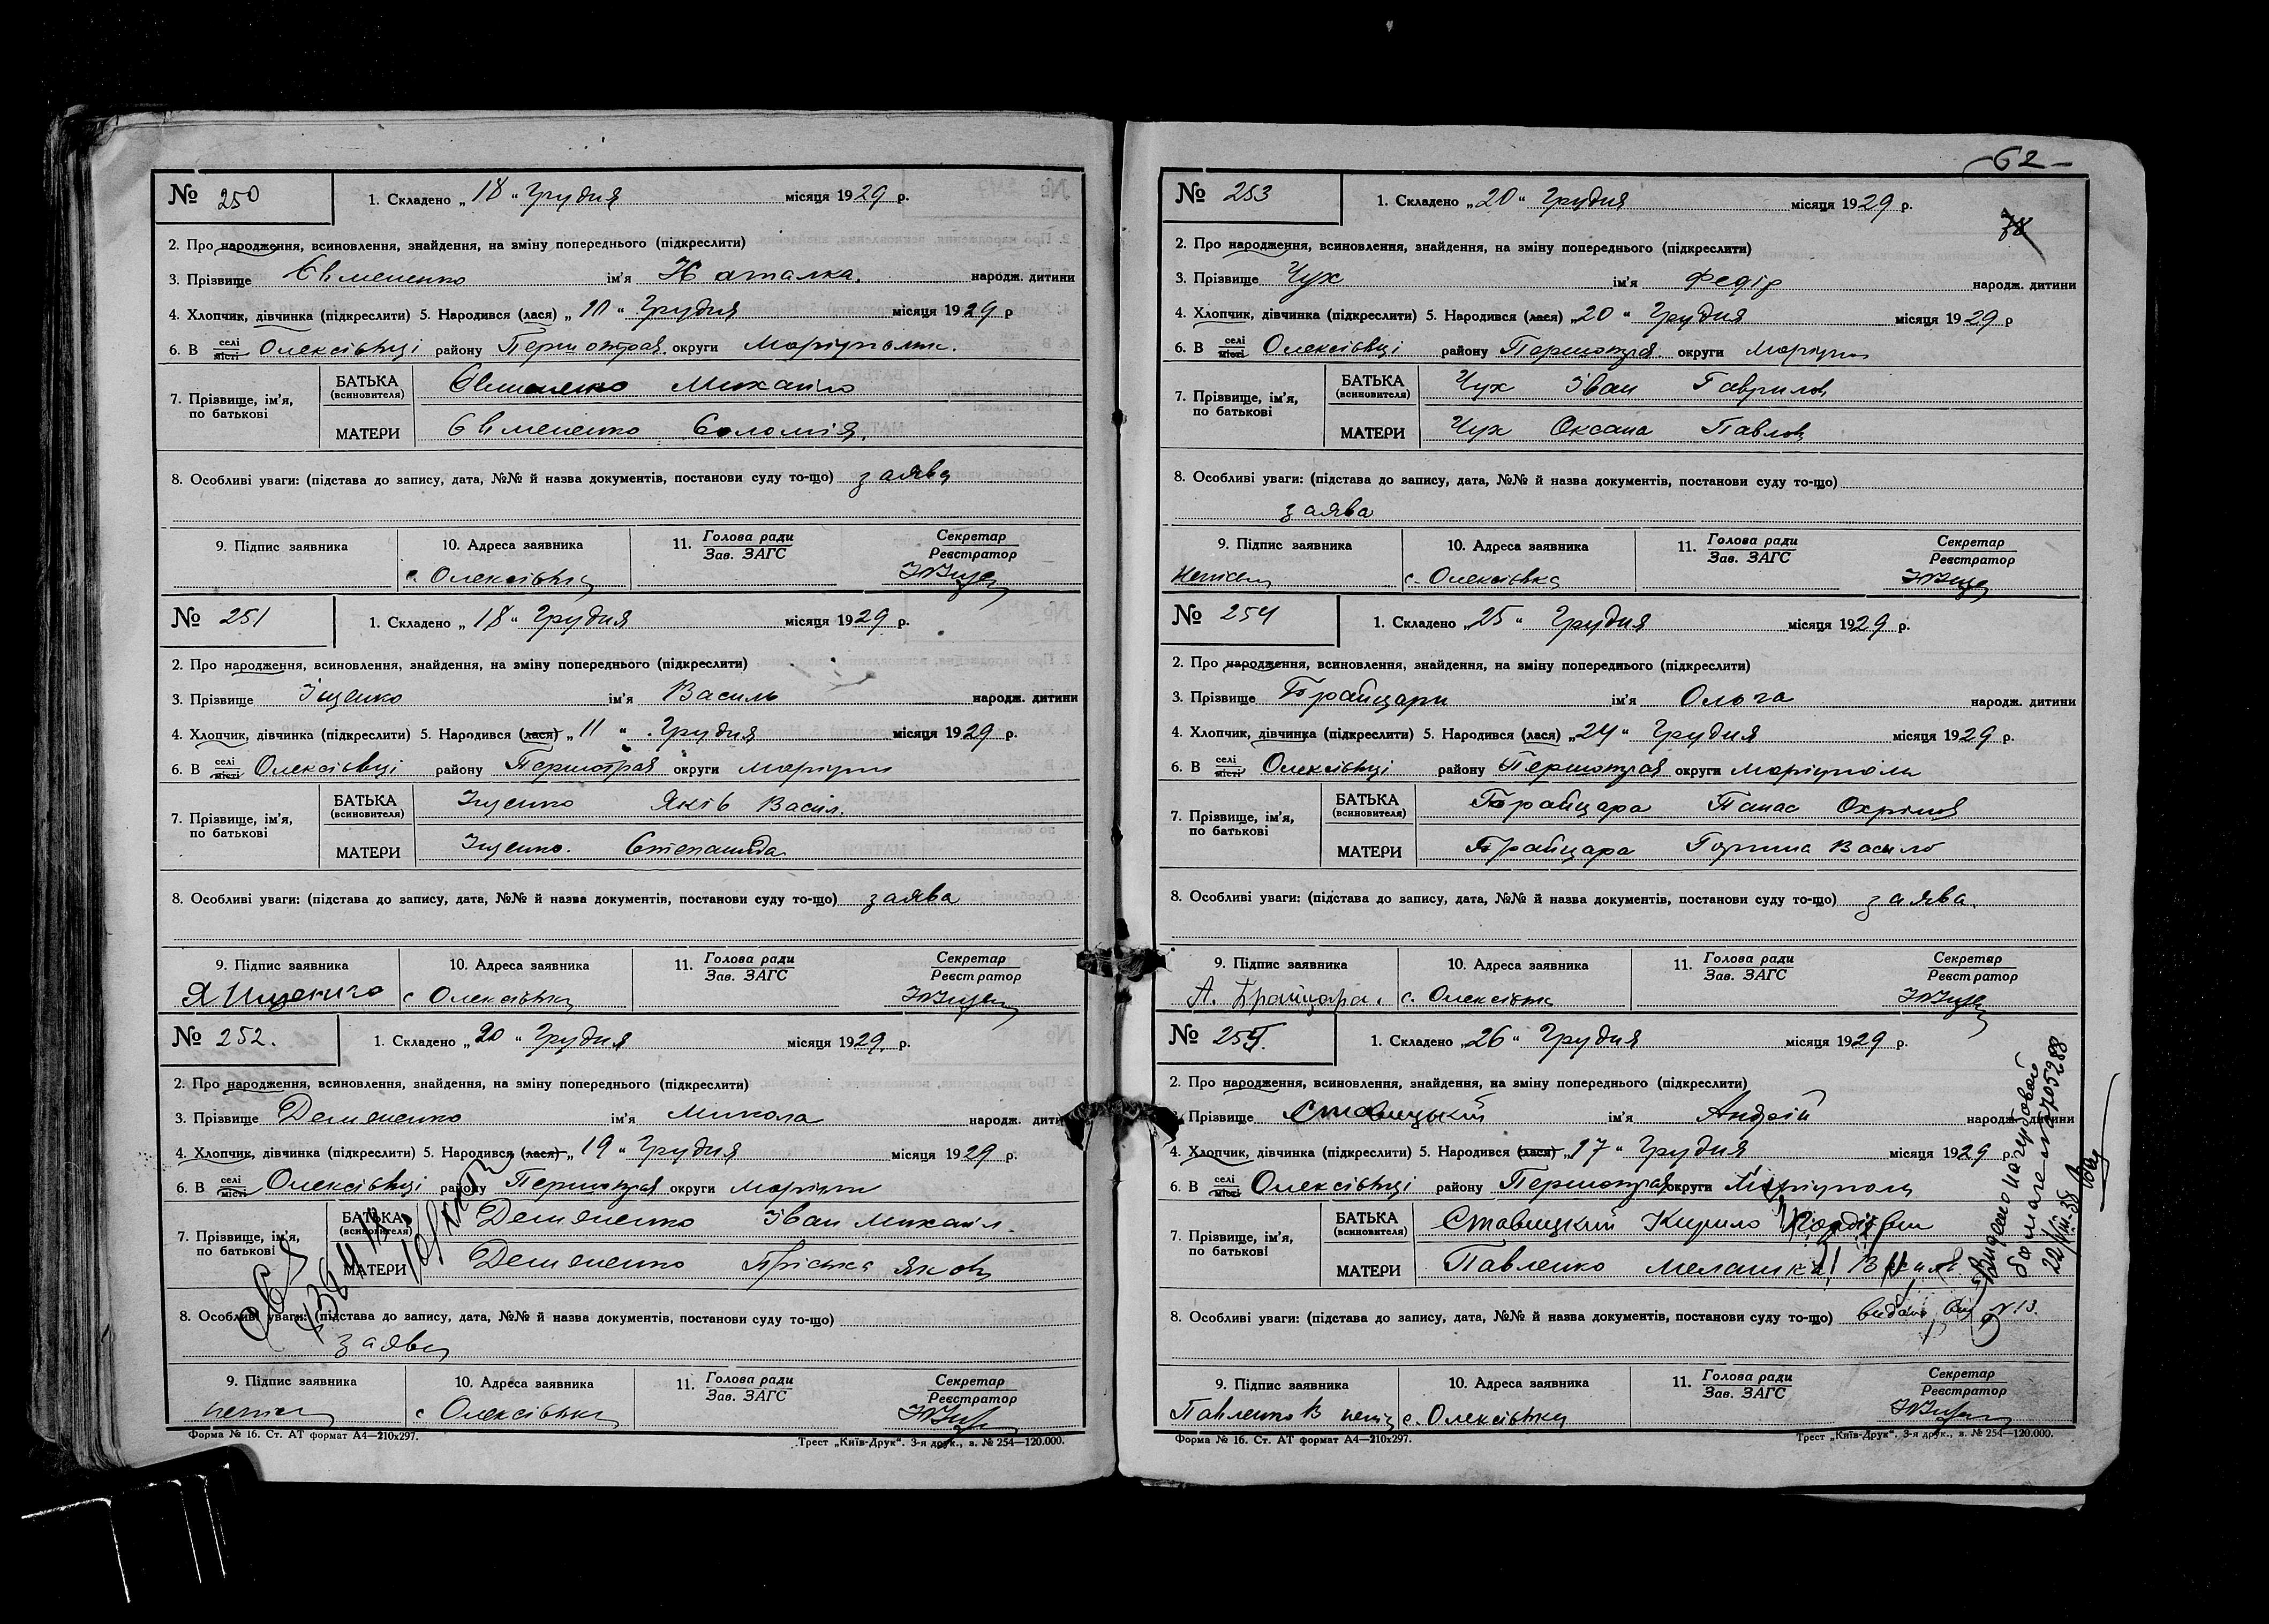 № 250 1. Складено „18“ Грудня місяця 1929 р.
2. Про народження, всиновлення, знайдення, на зміну попереднього (підкреслити)
3. Прізвище Євмененко ім'я Наталка. народж. дитини
4. Хлопчик, дівчинка (підкреслити) 5. Народився (лася) „10“ Грудня місяця 1929 р
6. В селі місті Олексіївці району Першотрав. округи Маріупольск.
7. Прізвище, ім'я, по батькові БАТЬКА (всиновителя) Євмененко Михайло
МАТЕРИ Євмененко Соломія.
8. Особливі уваги: (підстава до запису, дата, №№ й назва документів, постанови суду то-що) заява
9. Підпис заявника 10. Адреса заявника 11. Голова ради Зав. ЗАГС Секретар Реєстратор
с. Олексіївка
№ 251 1. Складено „18“ Грудня місяця 1929 р.
2. Про народження, всиновлення, знайдення, на зміну попереднього (підкреслити)
3. Прізвище Іщенко ім'я Василь народж. дитини
4. Хлопчик, дівчинка (підкреслити) 5. Народився (лася) „11“ Грудня місяця 1929 р.
6. В селі місті Олексіївці району Першотрав округи Маріуп
7. Прізвище, ім'я, по батькові БАТЬКА (всиновителя) Іщенко Яків Васил.
МАТЕРИ Іщенко. Степанида
8. Особливі уваги: (підстава до запису, дата, №№ й назва документів, постанови суду то-що) заява
9. Підпис заявника 10. Адреса заявника 11. Голова ради Зав. ЗАГС Секретар Реєстратор
Я Ищенко с Олексіївка
№ 252. 1. Складено „20“ Грудня місяця 1929 р.
2. Про народження, всиновлення, знайдення, на зміну попереднього (підкреслити)
3. Прізвище ім'я Микола народж. дитини
4. Хлопчик, дівчинка (підкреслити) 5. Народився (лася) „19“ Грудня місяця 1929 р.
6. В селі місті Олексіївці району Першотрав округи Маріуп
7. Прізвище, ім'я, по батькові БАТЬКА (всиновителя) Іван Михайл.
МАТЕРИ Пріська Яков
8. Особливі уваги: (підстава до запису, дата, №№ й назва документів, постанови суду то-що)
заява
9. Підпис заявника 10. Адреса заявника 11. Голова ради Зав. ЗАГС Секретар Реєстратор
с Олексіївка
Форма № 16. Ст. АТ формат А4—210х297. Трест „Київ-Друк“. 3-я друк., з. № 254—120.000.
-62-
78
№ 253 1. Складено „20“ Грудня місяця 1929 р.
2. Про народження, всиновлення, знайдення, на зміну попереднього (підкреслити)
3. Прізвище Чух ім'я Федір народж. дитини
4. Хлопчик, дівчинка (підкреслити) 5. Народився (лася) „20“ Грудня місяця 1929 р
6. В селі місті Олексіївці району Першотрав. округи Маріуп
7. Прізвище, ім'я, по батькові БАТЬКА (всиновителя) Чух Іван Гаврилов
МАТЕРИ Чух Оксана Павлов
8. Особливі уваги: (підстава до запису, дата, №№ й назва документів, постанови суду то-що)
заява
9. Підпис заявника 10. Адреса заявника 11. Голова ради Зав. ЗАГС Секретар Реєстратор
с. Олексіївка
№ 254 1. Складено „25“ Грудня місяця 1929 р.
2. Про народження, всиновлення, знайдення, на зміну попереднього (підкреслити)
3. Прізвище ім'я Ольга народж. дитини
4. Хлопчик, дівчинка (підкреслити) 5. Народився (лася) „24“ Грудня місяця 1929 р.
6. В селі місті Олексіївці району Першотрав округи Маріуполь
7. Прізвище, ім'я, по батькові БАТЬКА (всиновителя) Брайцара Панас Охрімов
МАТЕРИ Брайцара Горпина Василь
8. Особливі уваги: (підстава до запису, дата, №№ й назва документів, постанови суду то-що) заява.
9. Підпис заявника 10. Адреса заявника 11. Голова ради Зав. ЗАГС Секретар Реєстратор
А. Брайцара. с. Олексіївка
№ 255. 1. Складено „26“ Грудня місяця 1929 р.
2. Про народження, всиновлення, знайдення, на зміну попереднього (підкреслити)
3. Прізвище Ставицький ім'я Андрій народж. дитини
4. Хлопчик, дівчинка (підкреслити) 5. Народився (лася) „17“ Грудня місяця 1929 р.
6. В селі місті Олексіївці району Першотрав округи Маріуполь
7. Прізвище, ім'я, по батькові БАТЬКА (всиновителя) Ставицкий Кирило
МАТЕРИ Павленко Мелашка Васил
8. Особливі уваги: (підстава до запису, дата, №№ й назва документів, постанови суду то-що)
9. Підпис заявника 10. Адреса заявника 11. Голова ради Зав. ЗАГС Секретар Реєстратор
Павленко В с. Олексіївка
Форма № 16. Ст. АТ формат А4—210х297. Трест „Київ-Друк“. 3-я друк., з. № 254—120.000.